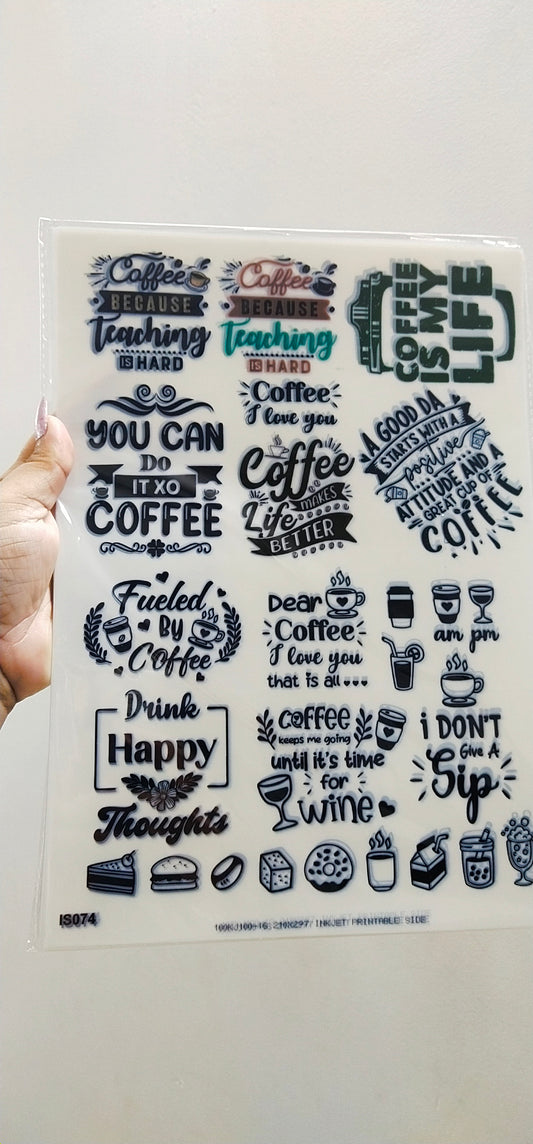 Coffee
BECAUSE
Teaching
IS HARD
Coffee
BECAUSE
Teaching
IS HARD
COFFEE
IS MY
LIFE
YOU CAN
DO
IT XO
COFFEE
Coffee
I love you
Coffee
MAKES
Life
BETTER
A GOOD DA
STARTS WITH A
positive
ATTITUDE AND A
GREAT CUP OF
COFFEE
Fueled
By
Coffee
Dear
Coffee
I love you
that is all
am pm
Drink
Happy
Thoughts
COFFEE
keeps me going
until it's time
for
WINE
i DON'T
Give A
Sip
IS074
INKJET PRINTABLE SIDE